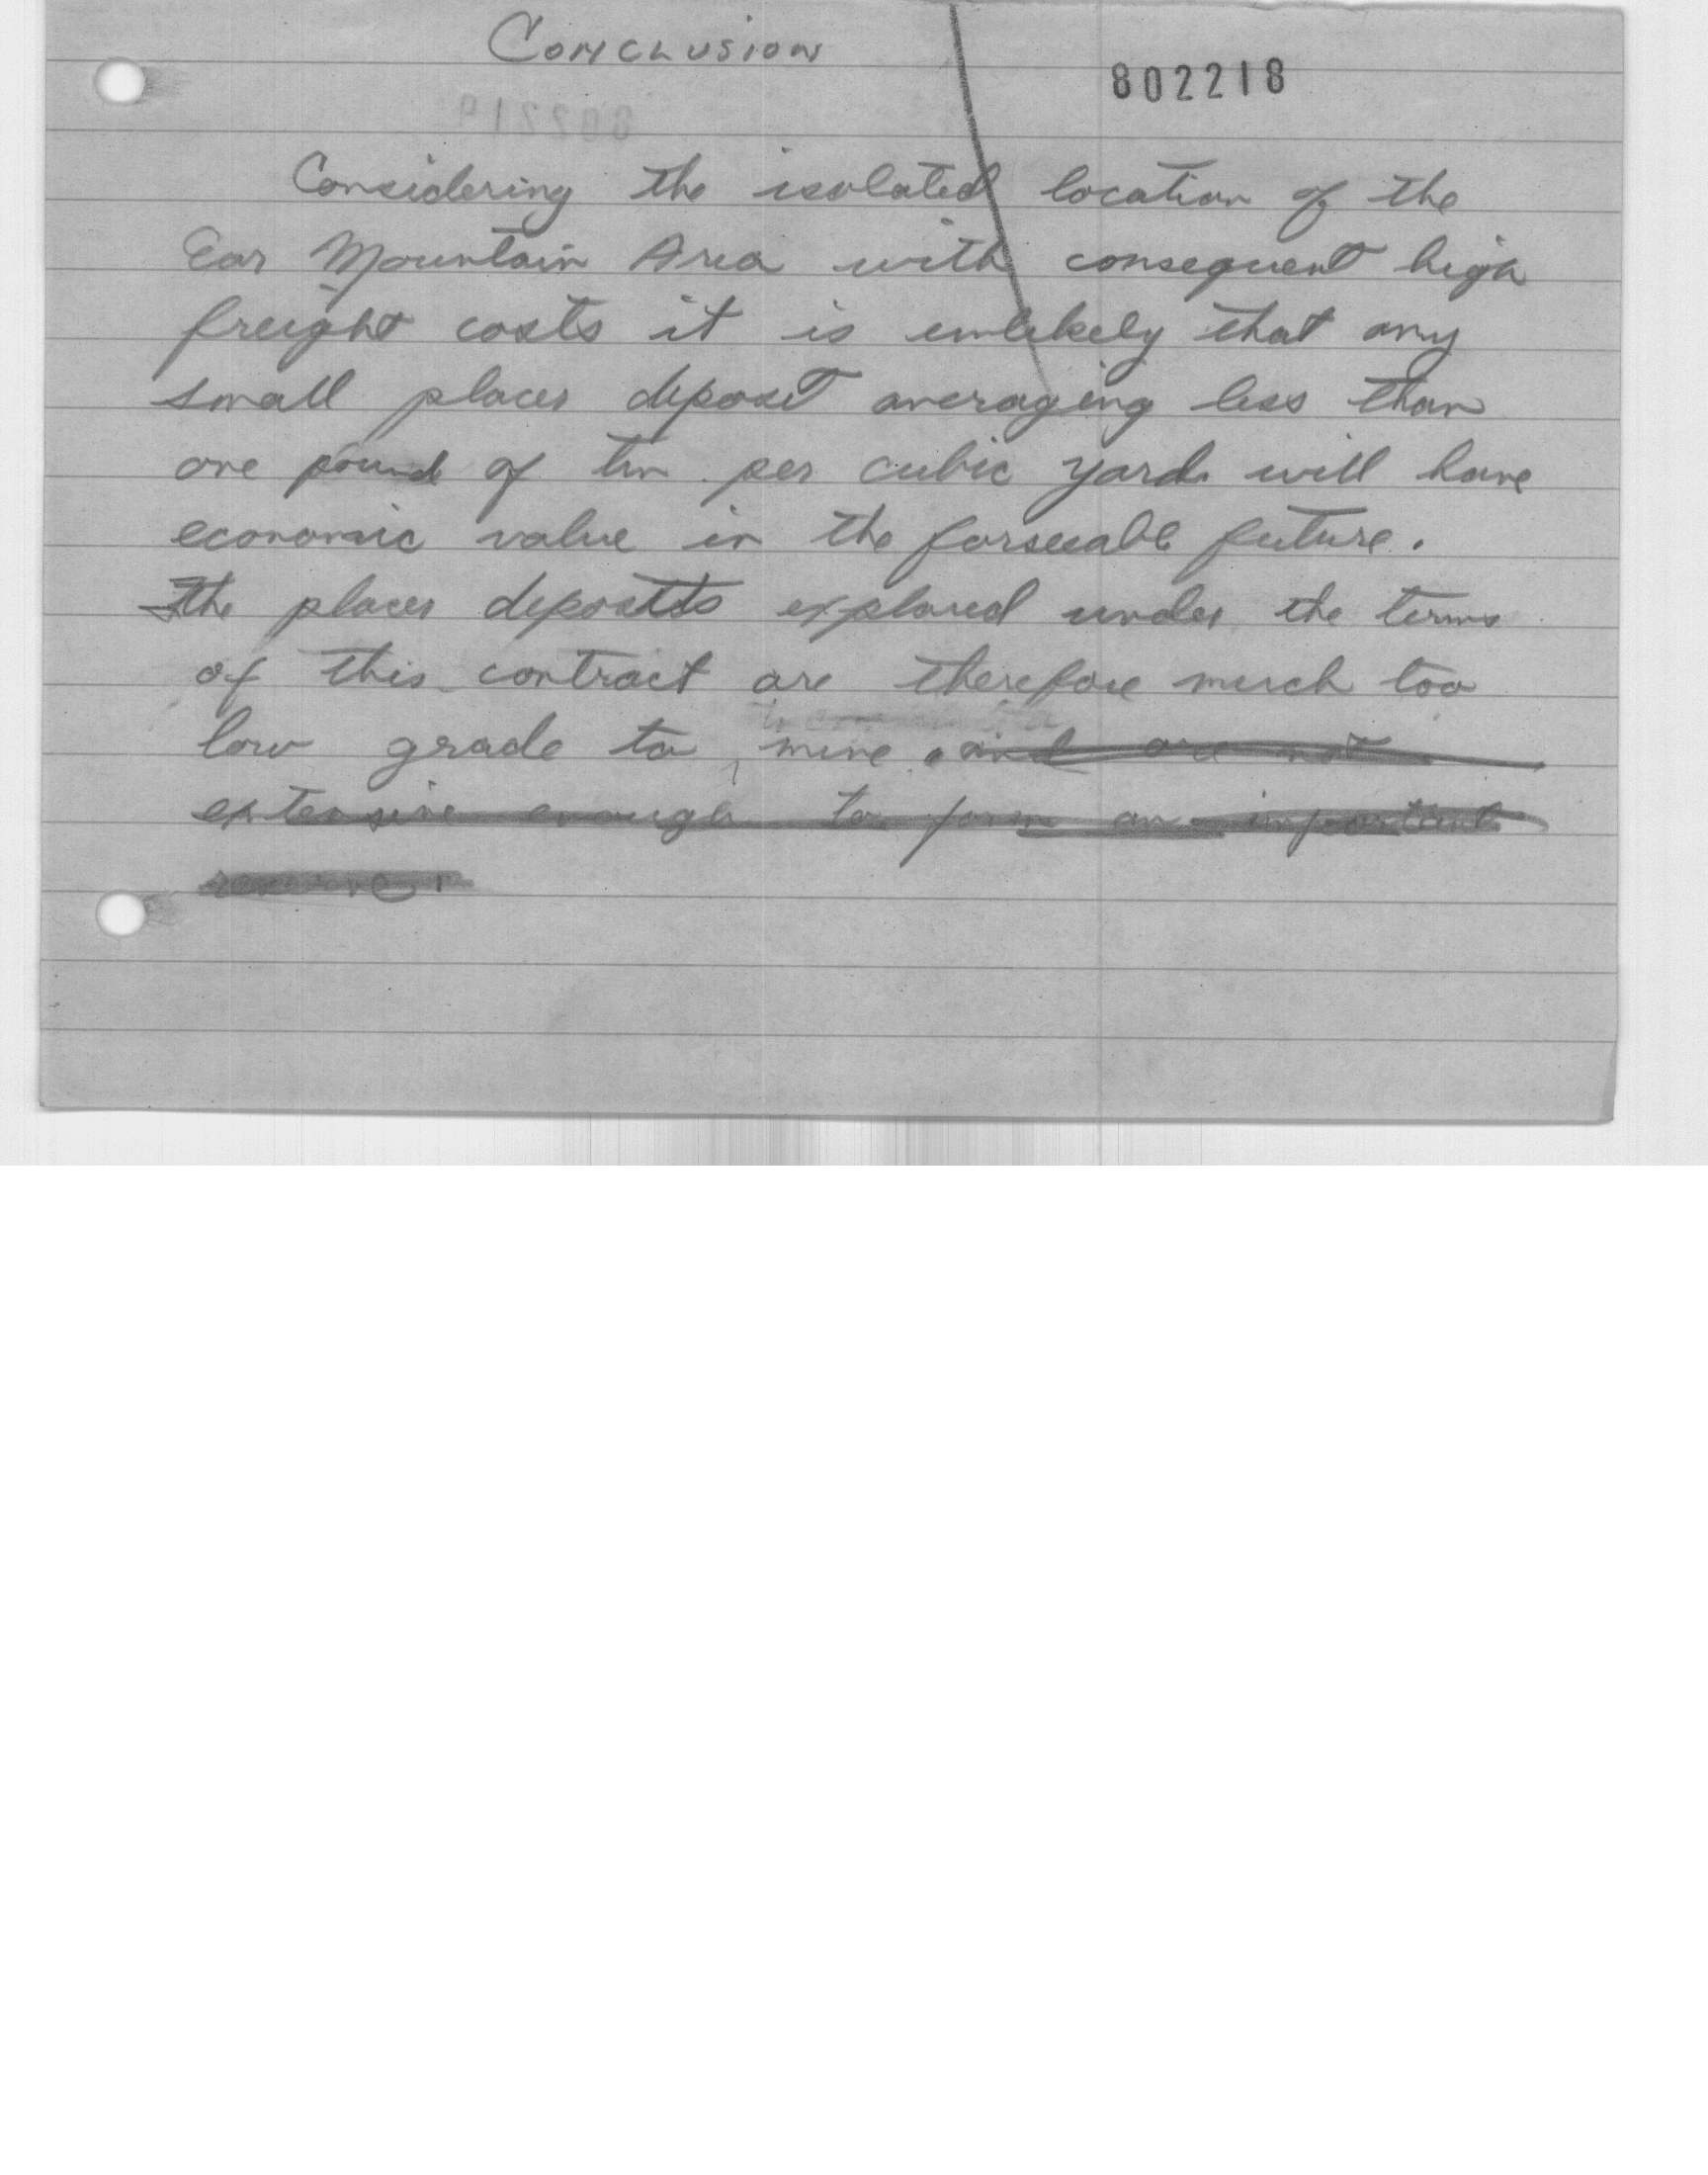 Conclusion
802218
Considering the isolated location of the
Ear Mountain Area with consequent high
freight costs it is unlikely that any
small placer deposit averaging less than
one pound of tin per cubic yard will have
economic value in the forseeable future.
The placer deposits explored under the terms
of this contract are therefore much too
low grade to mine. and are not
extensive enough to form an important
reserve.